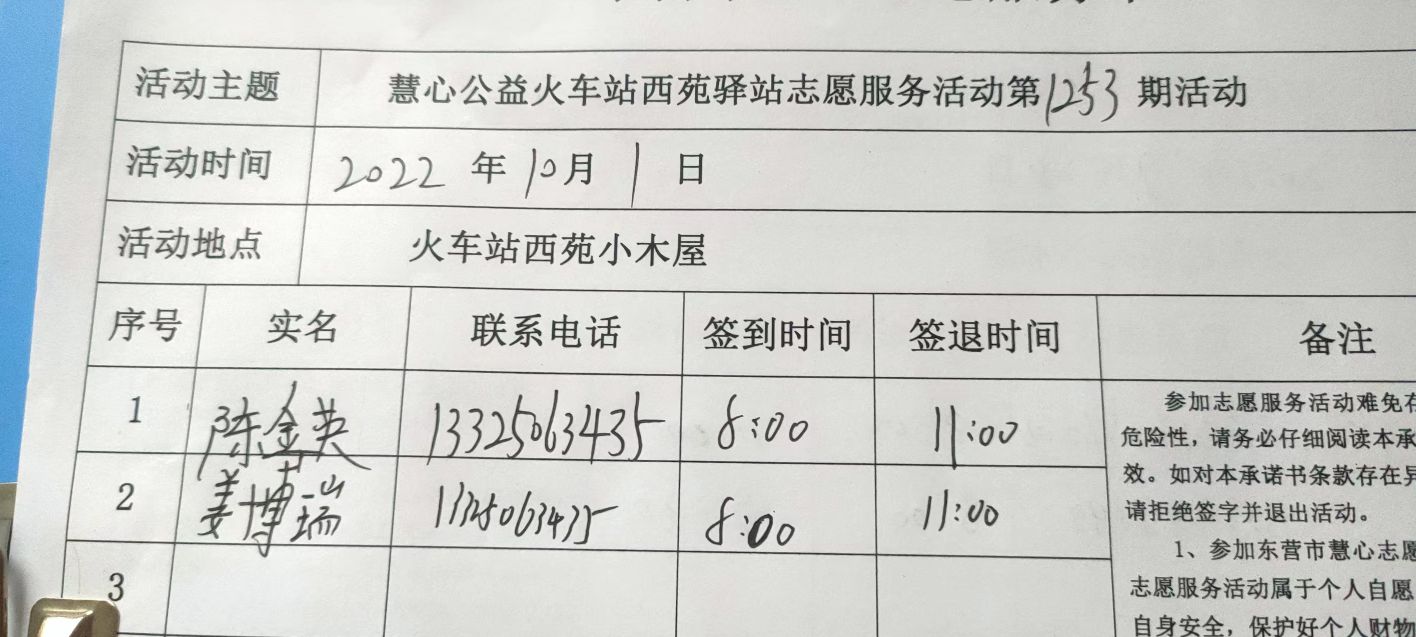 活动主题 慧心公益火车站西苑驿站志愿服务活动第1253期活动
活动时间 2022 年 10月 1 日
活动地点 火车站西苑小木屋
序号 实名 联系电话 签到时间 签退时间 备注
1 陈金英 13325063435 8:00 11:00
2 姜博瑞 13325063435 8:00 11:00
3
参加志愿服务活动难免存
危险性，请务必仔细阅读本承
效。如对本承诺书条款存在异
请拒绝签字并退出活动。
1、参加东营市慧心志愿
志愿服务活动属于个人自愿
自身安全，保护好个人财物